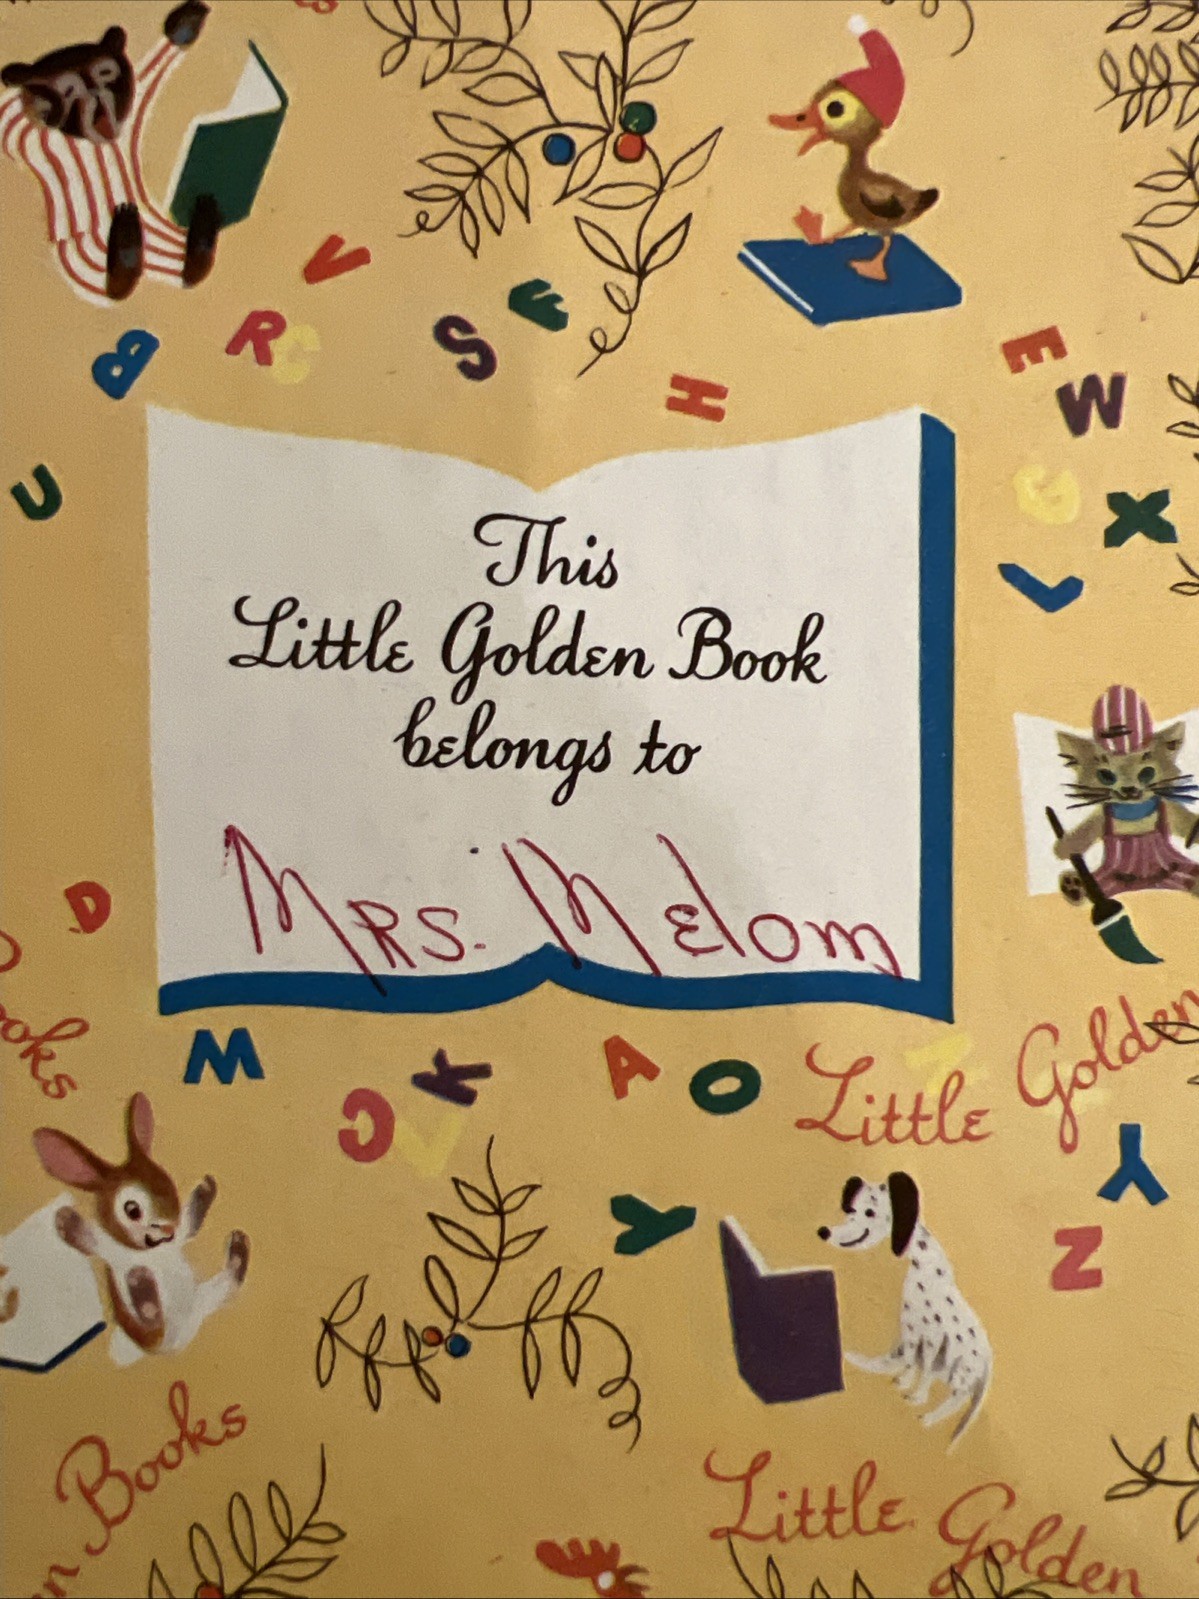 V
F
B
R
C
S
H
E
W
U
G
X
L
This
Little Golden Book
belongs to
MRS. Melom
D
ooks
M
K
A
O
C
V
Little Golden
Y
Y
Z
Books
Little Golden